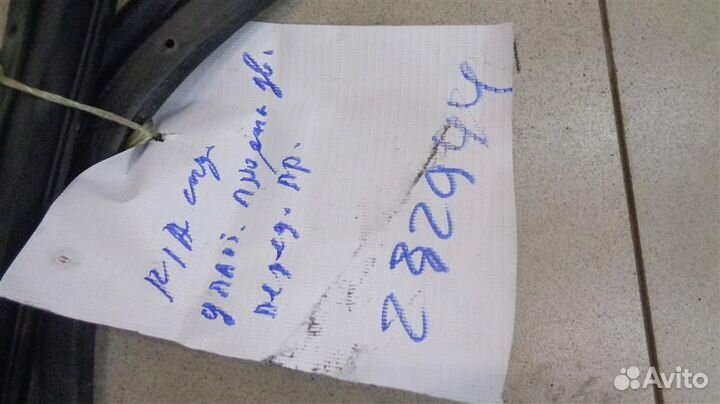 KIA спд
уплот. проёма дв.
перед. пр.
282994
Avito